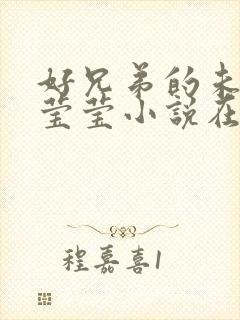 好兄弟的未
莹莹小说在
程嘉喜1